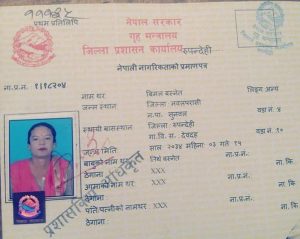 ११९६५
प्रथम प्रतिलिपि
नेपाल सरकार
गृह मन्त्रालय
जिल्ला प्रशासन कार्यालय रुपन्देही
नेपाली नागरिकताको प्रमाणपत्र
ना.प्र.नं. ९१९८२०४
नाम थर: बिमला बस्नेत लिङ्ग: अन्य
जन्म स्थान: जिल्ला: नवलपरासी
न.पा. सुनवल वडा नं. ४
स्थायी बासस्थान: जिल्ला: रुपन्देही
गा.वि.स. देवदह वडा नं. ५
जन्म मिति: २०३४ महिना ०३ गते १५
बाबुको नाम थर: बस्नेत ना. कि.
ठेगाना: XXX
आमाको नाम थर: XXX ना. कि.
ठेगाना: XXX
पति/पत्नीको नामथर: XXX ना. कि.
ठेगाना: XXX
प्रशासकीय अधिकृत